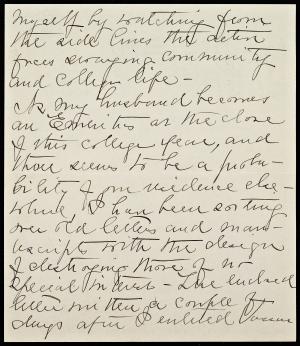 myself by watching from
the side lines the active
forces swaying community
and college life –
As my husband becomes
an Emeritus at the close
of this college year, and
there seems to be a proba-
bility of our residence else-
where, I have been sorting
over old letters and man-
uscripts with the design
of destroying those of no
special interest – The enclosed
letter written a couple of
days after I entered Vassar